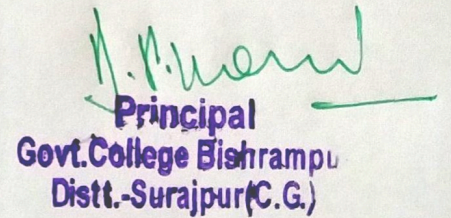 Principal
Govt.College Bishrampu
Distt.-Surajpur(C.G.)